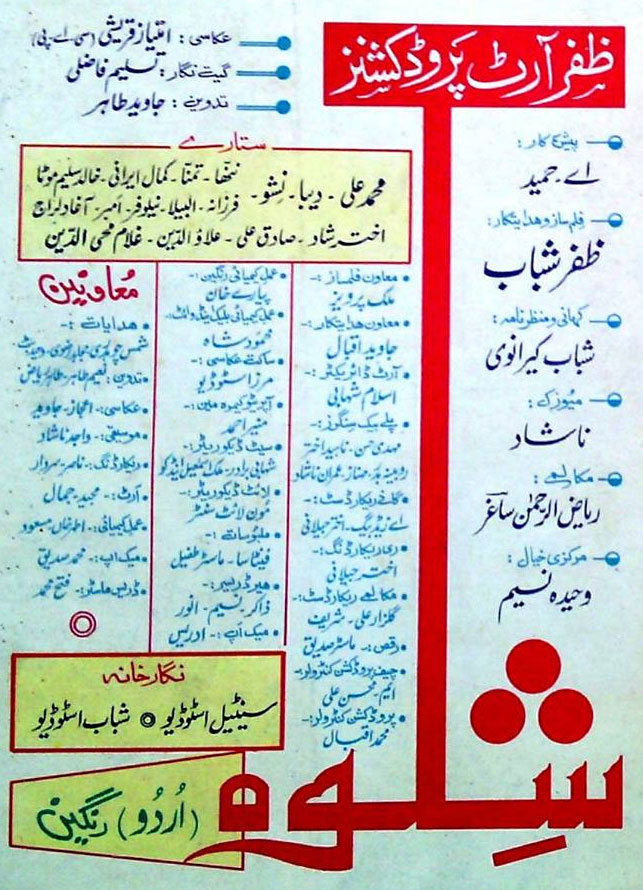 ظفر آرٹ پروڈکشنز
عکاسی: امتیاز قریشی (سی-اے-پی)
گیت نگار: تسلیم فاضلی
تدوین: جاوید طاہر
پیش کار:
اے-حمید
فلمساز و ہدایتکار:
ظفر شباب
کہانی و منظرنامہ:
شباب کیرانوی
میوزک:
ناشاد
مکالمے:
ریاض الرحمٰن ساغر
مرکزی خیال:
وحیدہ نسیم
ستارے
محمد علی - دیبا - نشو - ننھا - تمنا - کمال ایرانی - خالد سلیم موٹا
فرزانہ - البیلا - نیلوفر - امبر - آغا دلراج
اختر شاد - صادق علی - علاؤالدین - غلام محی الدین
معاون فلمساز:-
ملک پرویز
معاون ہدایتکار:-
جاوید اقبال
آرٹ ڈائریکٹر:-
اسلام شہابی
پلے بیک سنگرز:-
مہدی حسن - ناہید اختر
روبینہ بدر - مہناز - عمران ناشاد
گانے ریکارڈسٹ:-
اے زیڈ بیگ - اختر جیلانی
ری ریکارڈنگ:-
اختر جیلانی
مکالمے ریکارڈسٹ:-
گلزار علی - شریف
رقص:- ماسٹر صدیق
چیف پروڈکشن کنٹرولر:-
ایم - محسن علی
پروڈکشن کنٹرولر:-
محمد اقبال
عمل کیمیائی رنگین:-
پیارے خان
عمل کیمیائی بلیک اینڈ وائٹ:-
محمود شاہ
ساکت عکاسی:-
مرزا سٹوڈیو
آپریٹو کیمرہ مین:-
منیر احمد
سیٹ ڈیکوریٹر:-
لائٹ ڈیکوریٹر:-
مون لائٹ سنٹر
ملبوسات:-
فینٹاسا - ماسٹر طفیل
ہیر ڈریسر:-
ذاکر - نسیم - انور
میک اپ:- ادریس
معاونین
ہدایات:-
تدوین: نعیم طاہر - طاہر ریاض
عکاسی:- اعجاز - جاوید
موسیقی:- واجد ناشاد
ریکارڈنگ:- ناصر - سردار
آرٹ:- مجید - جمال
عمل کیمیائی:- اطہر خان - مسعود
میک اپ:- محمد صدیق
ڈریس ماسٹر:- فتح محمد
نگارخانہ
سینٹیل اسٹوڈیو شباب اسٹوڈیو
شکوہ
(اُردُو) رنگین